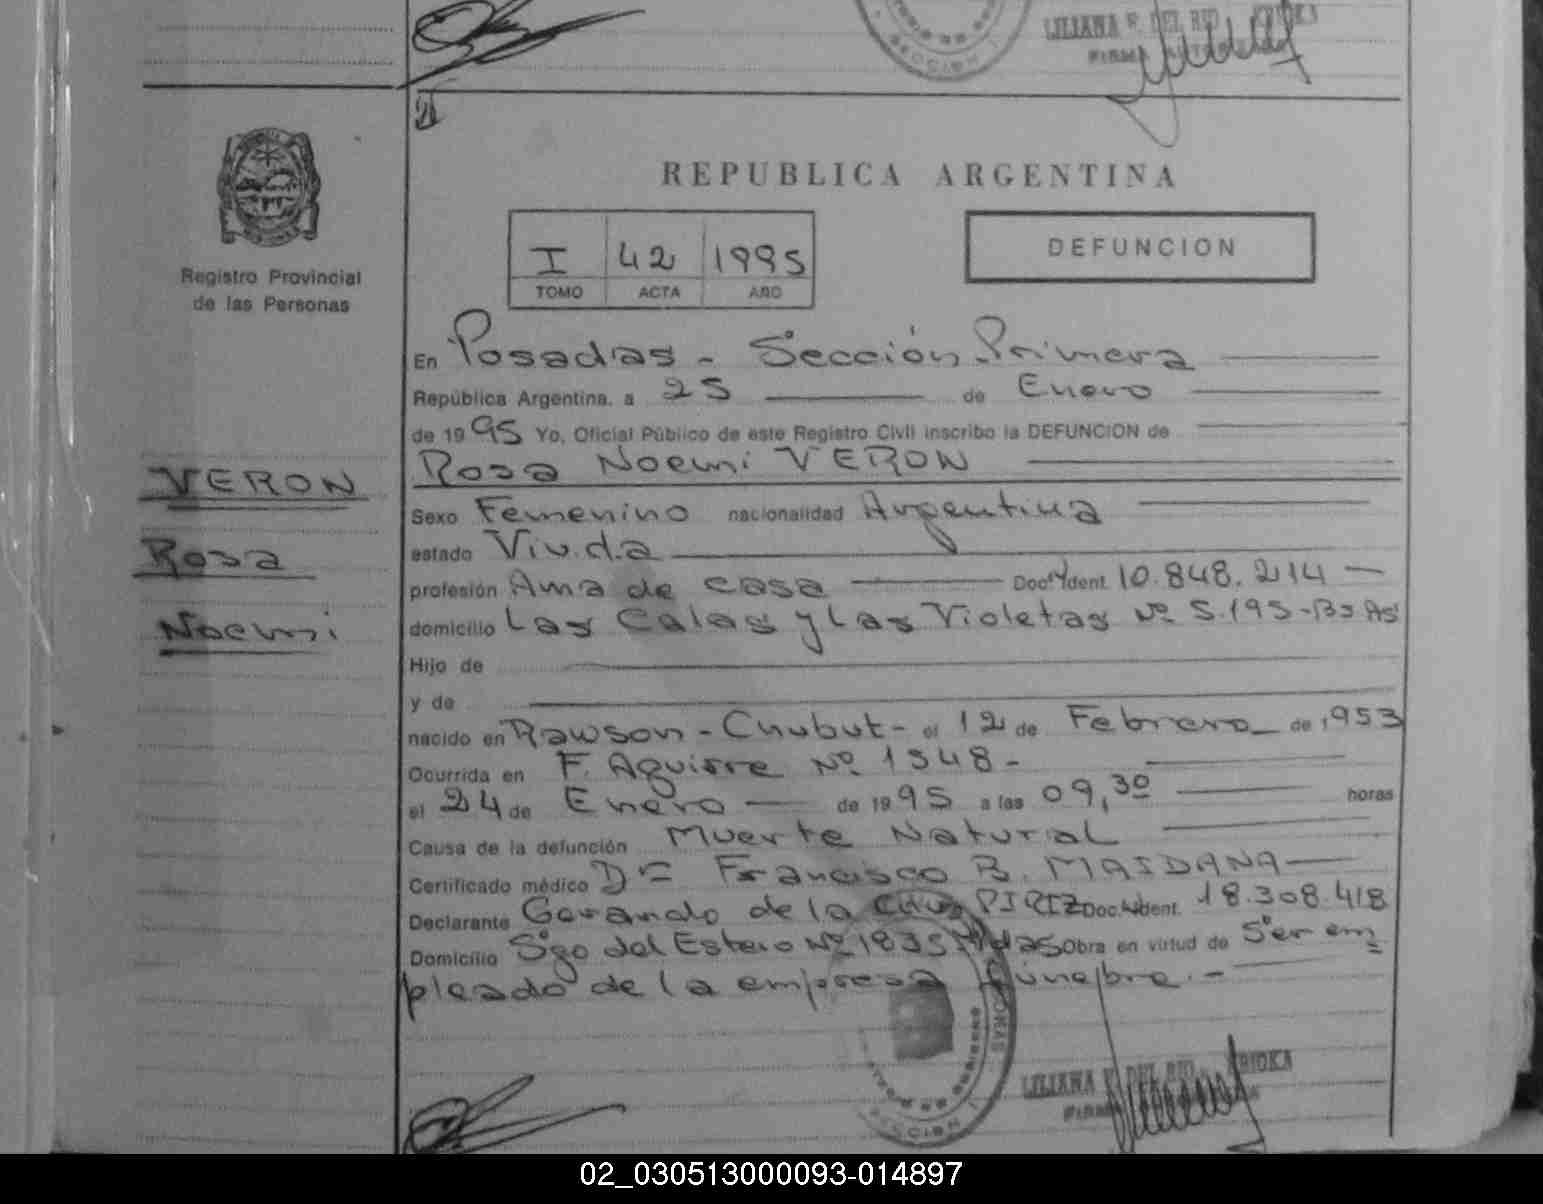 LILIANA F. DEL RIO
SECCION 1
REPUBLICA ARGENTINA
I 42 1995
TOMO ACTA AÑO
DEFUNCION
Registro Provincial
de las Personas
En Posadas - Sección Primera
República Argentina, a 25 de Enero
de 1995 Yo, Oficial Público de este Registro Civil inscribo la DEFUNCION de
Rosa Noemi VERON
VERON
Rosa
Noemi
Sexo Femenino nacionalidad Argentina
estado Viuda
profesión Ama de casa Doc. Ident. 10.848.214
domicilio Las Calas y Las Violetas Nº 5.195-Bs As
Hijo de
y de
nacido en Rawson - Chubut - el 12 de Febrero de 1953
Ocurrida en F. Aguirre Nº 1548 -
el 24 de Enero de 1995 a las 09,30 horas
Causa de la defunción Muerte Natural
Certificado médico Dr Francisco B. MAIDANA
Declarante Gerardo de la Cruz PIRIZ Doc. Ident. 18.308.418
Domicilio Sgo del Estero Nº 1835 Pdas Obra en virtud de Ser em
pleado de la empresa fúnebre.-
LILIANA F. DEL RIO
SECCION 1
02_030513000093-014897